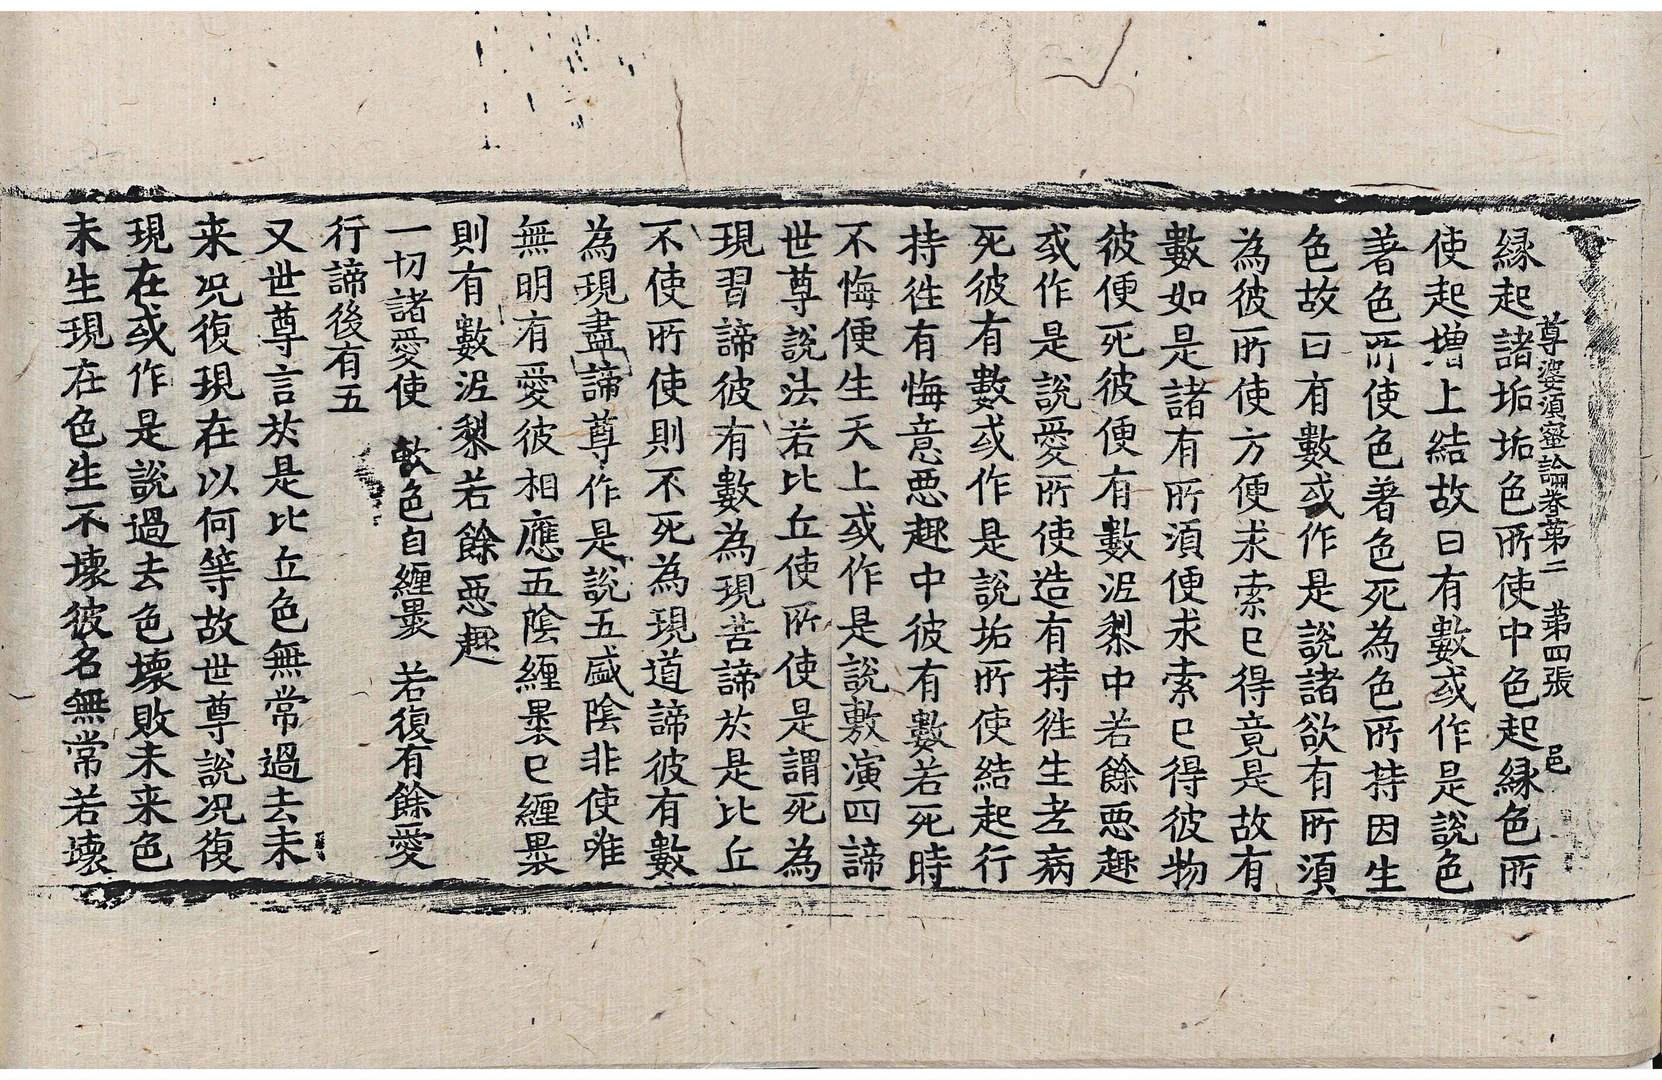 尊婆須蜜論卷第二 第四張 邑
縁起諸垢垢色所使中色起縁色所
使起增上結故曰有數或作是説色
著色所使色著色死為色所持因生
色故曰有數或作是説諸欲有所須
為彼所使方便求索已得竟是故有
數如是諸有所須便求索已得彼物
彼便死彼便有數泥梨中若餘惡趣
或作是説愛所使造有持徃生老病
死彼有數或作是説垢所使結起行
持徃有悔意惡趣中彼有數若死時
不悔便生天上或作是説敷演四諦
世尊説法若比丘使所使是謂死為
現習諦彼有數為現苦諦於是比丘
不使所使則不死為現道諦彼有數
為現盡諦尊作是説五盛陰非使唯
無明有愛彼相應五陰纒裹已纒裹
則有數泥梨若餘惡趣
一切諸愛使 軟色自纒裹 若復有餘愛
行諦後有五
又世尊言於是比丘色無常過去未
来况復現在以何等故世尊説况復
現在或作是説過去色壞敗未来色
未生現在色生不壞彼名無常若壞